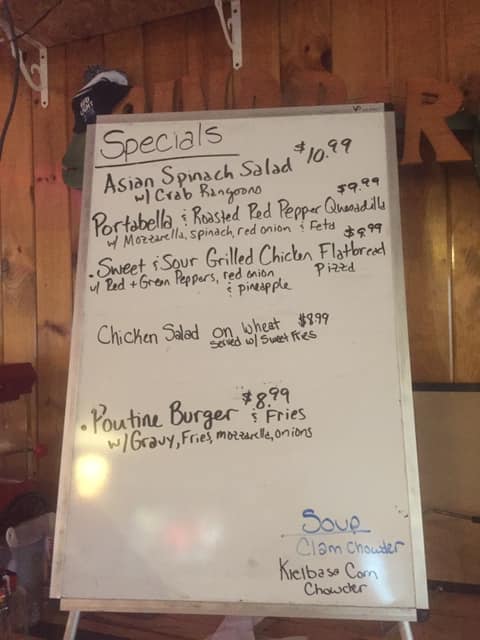 Specials
Asian Spinach Salad $10.99
w/ Crab Rangoons
$9.99
Portabella & Roasted Red Pepper Quesadilla
w/ Mozzarella, spinach, red onion & Feta
$9.99
• Sweet & Sour Grilled Chicken Flatbread
Pizza
w/ Red + Green Peppers, red onion
& pineapple
Chicken Salad on wheat $8.99
served w/ Sweet Fries
$8.99
• Poutine Burger & Fries
w/ Gravy, Fries, mozzarella, onions
Soup
Clam Chowder
Kielbasa Corn
Chowder